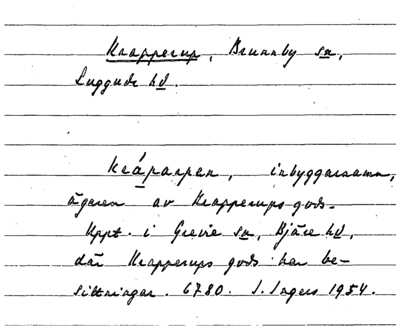 Krapperup, Brunnby sn,
Luggude hd.
Kråparpen, inbyggarnamn,
ägaren av Krapperups gods.
Uppt. i Grevie sn, Bjäre hd,
där Krapperups gods har be-
sittningar. 6780. I. Ingers 1954.